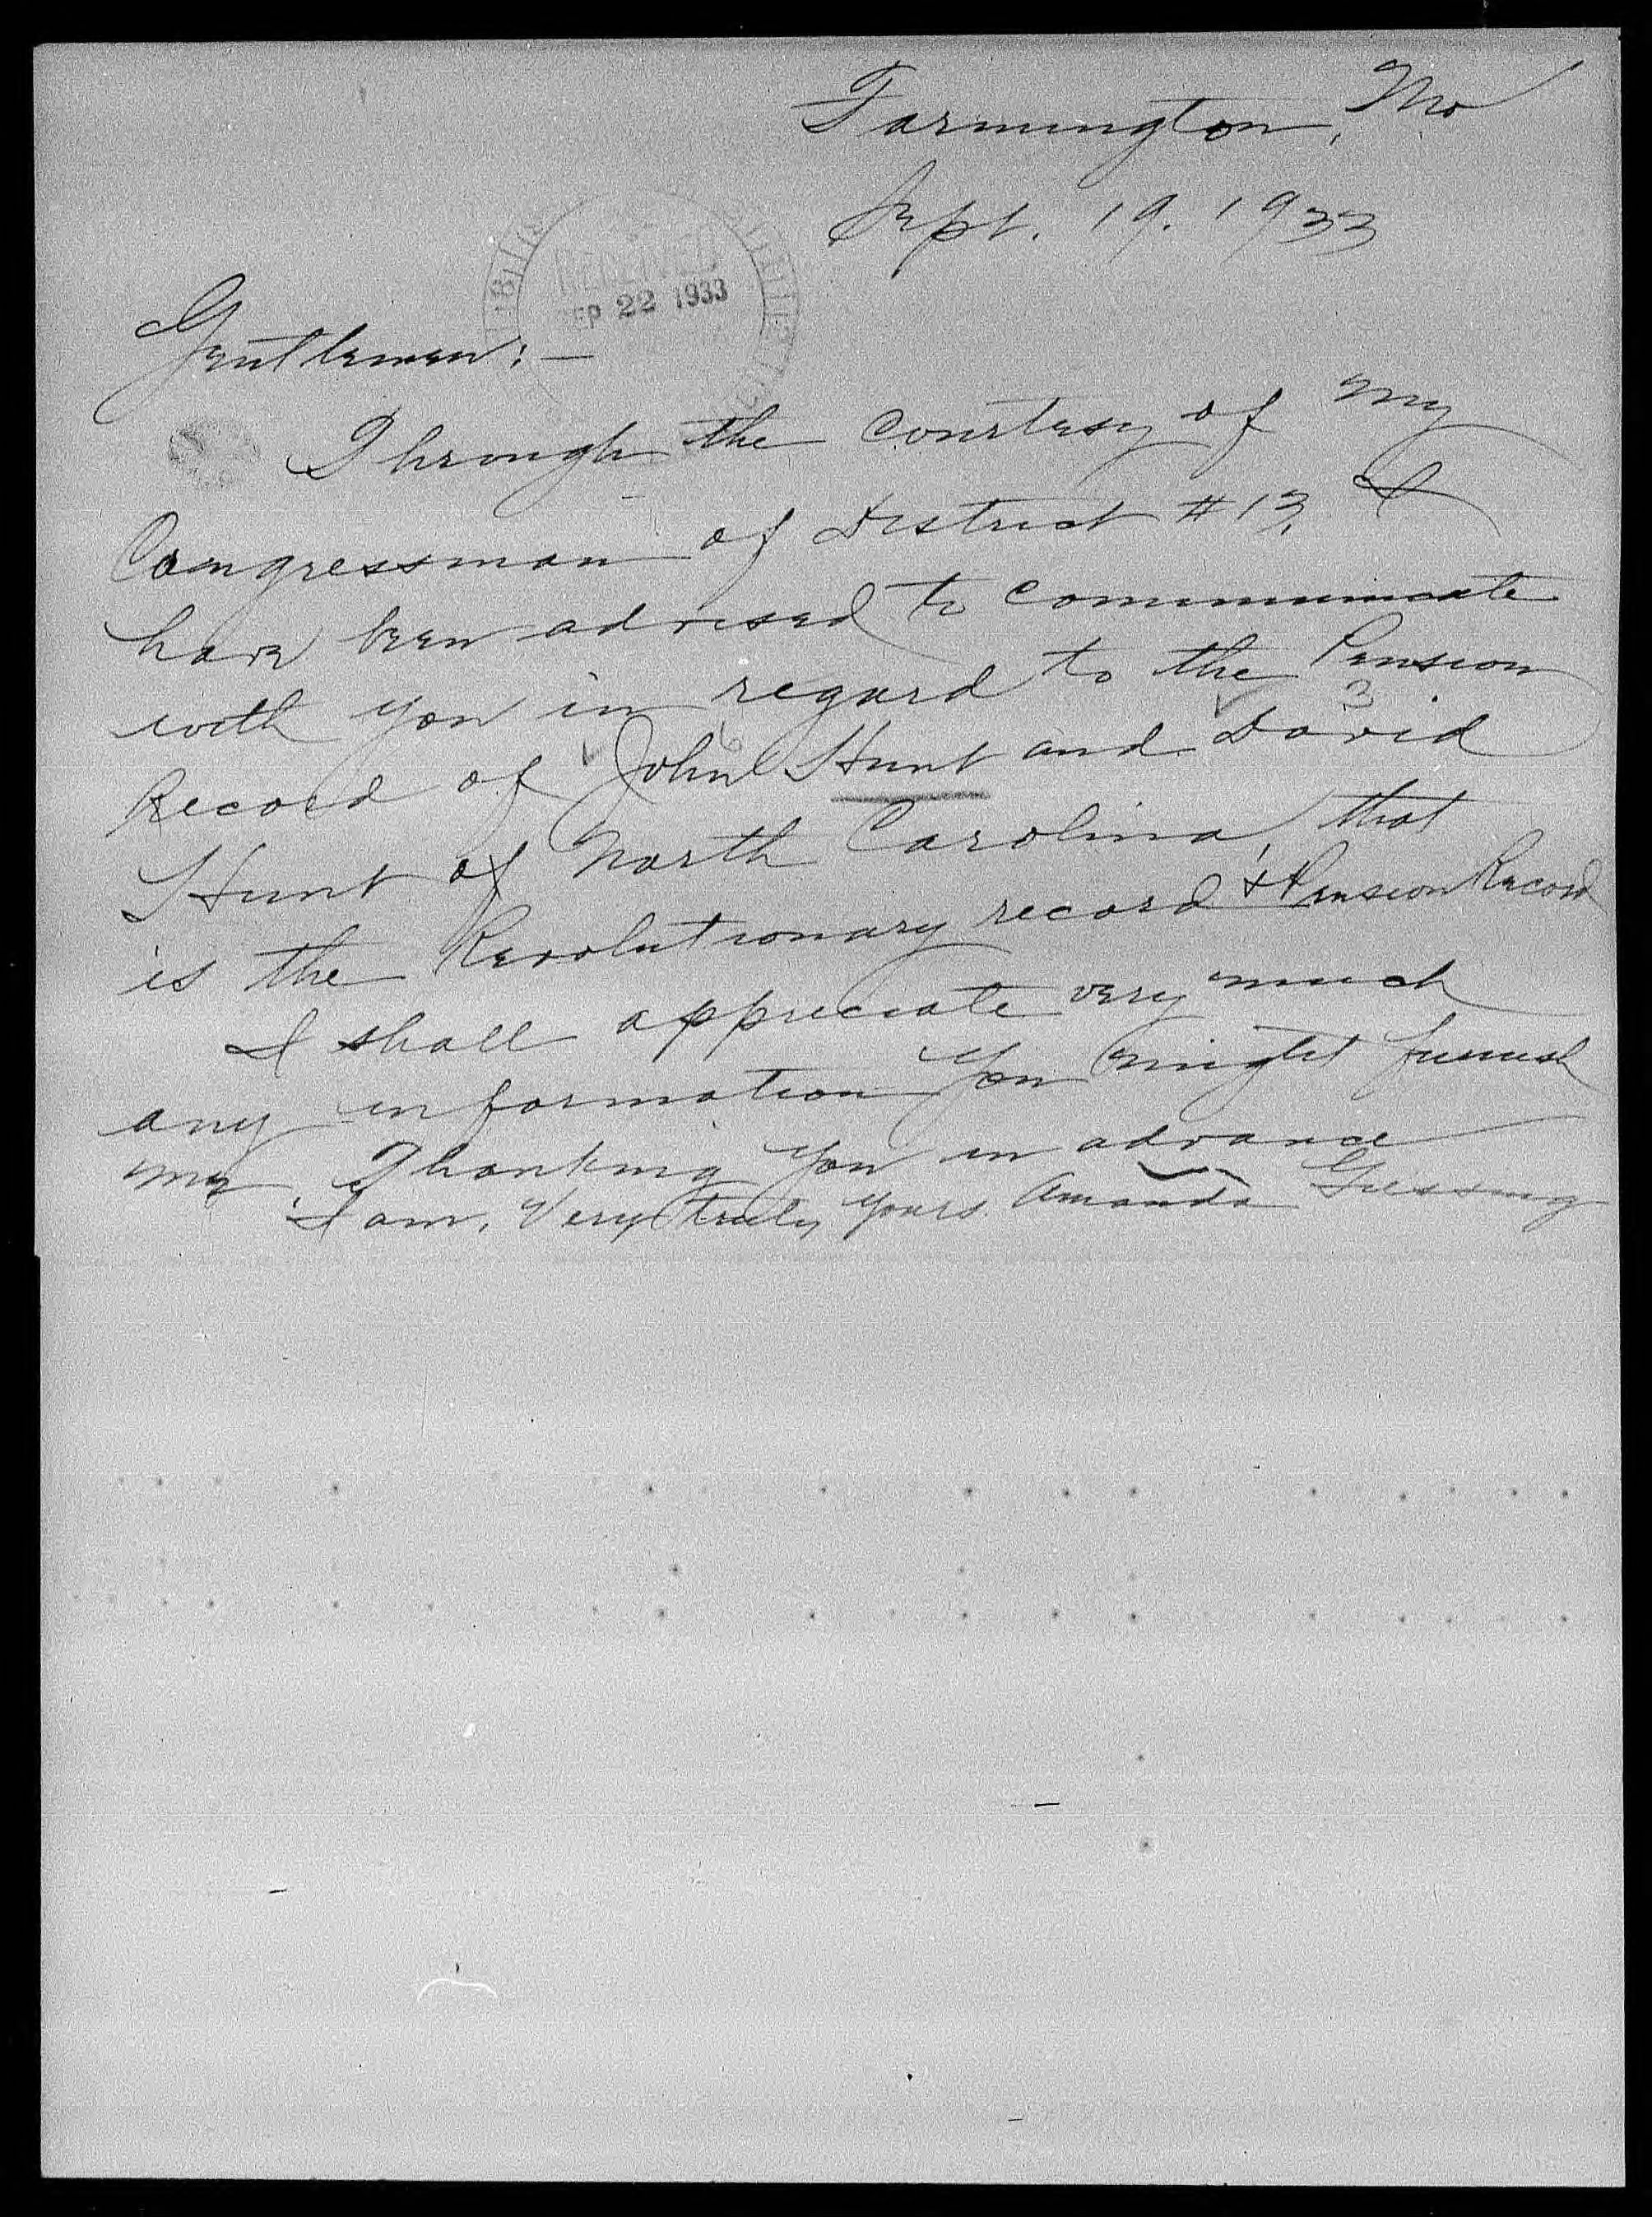 Farmington, Mo
Sept. 19. 1933
RECEIVED
SEP 22 1933
Gentlemen:—
Through the courtesy of my
Congressman of District #13, I
have been advised to communicate
with you in regard to the Pension
6 3
Record of John Hunt and David
Hunt of North Carolina, that
is the Revolutionary record & Pension Record
I shall appreciate very much
any information you might furnish
me. Thanking you in advance
I am, Very truly yours. Amanda Giessing